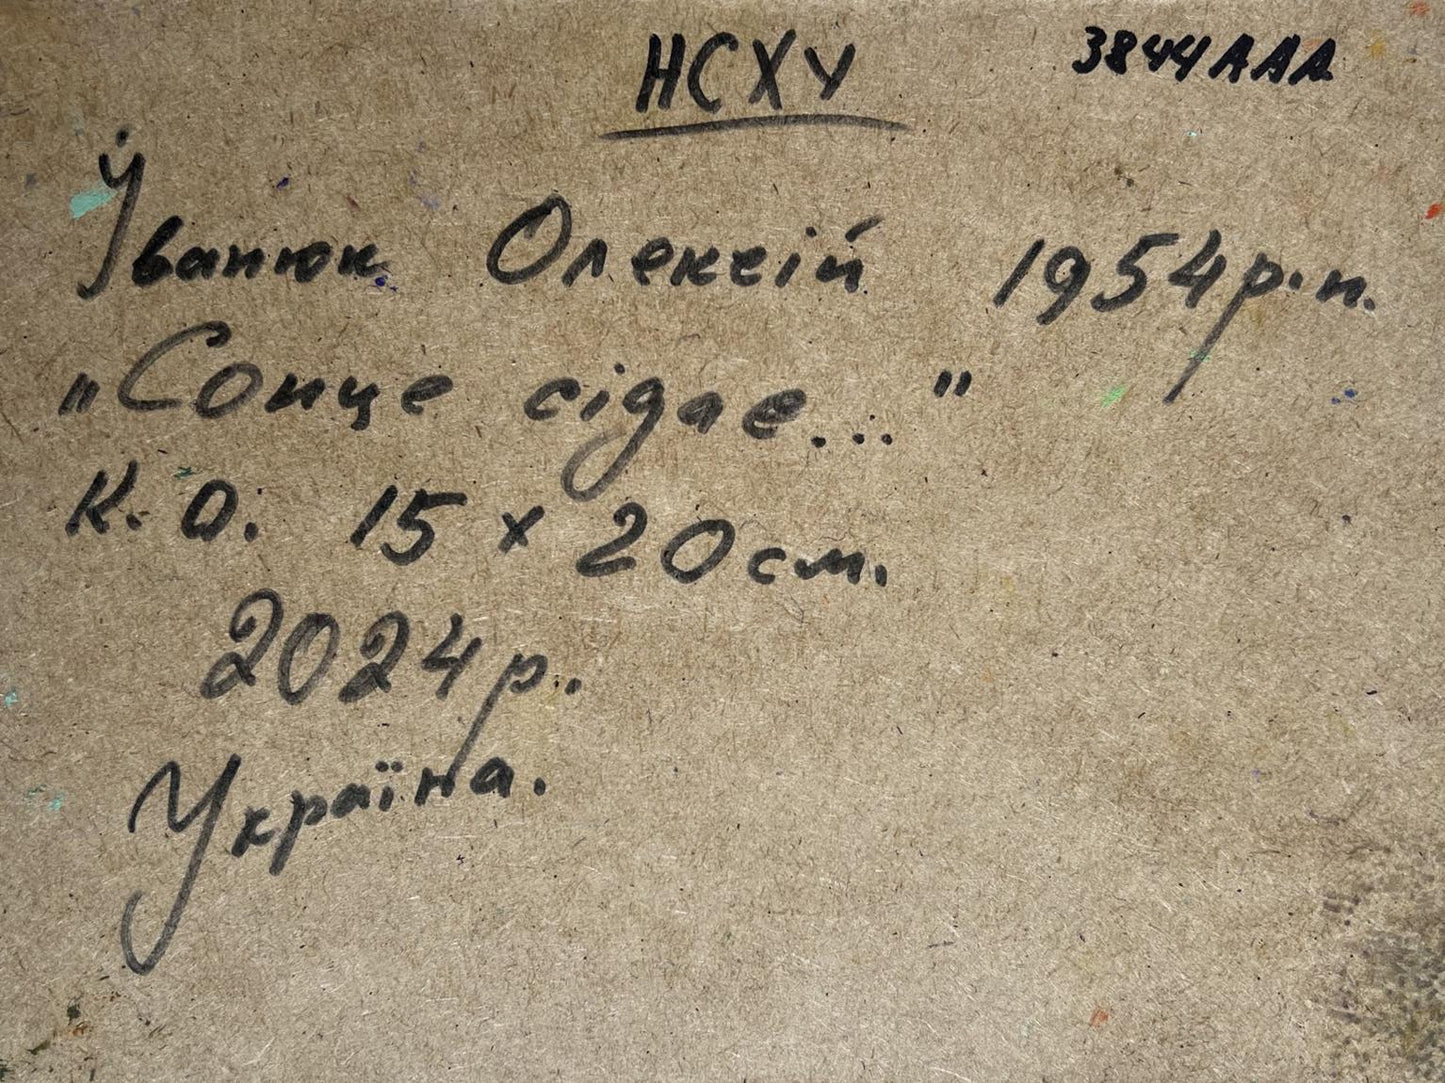 НСХУ 3844AAA
Іванюк Олексій 1954р.н.
"Сонце сідає..."
К.О. 15 x 20см.
2024р.
Україна.